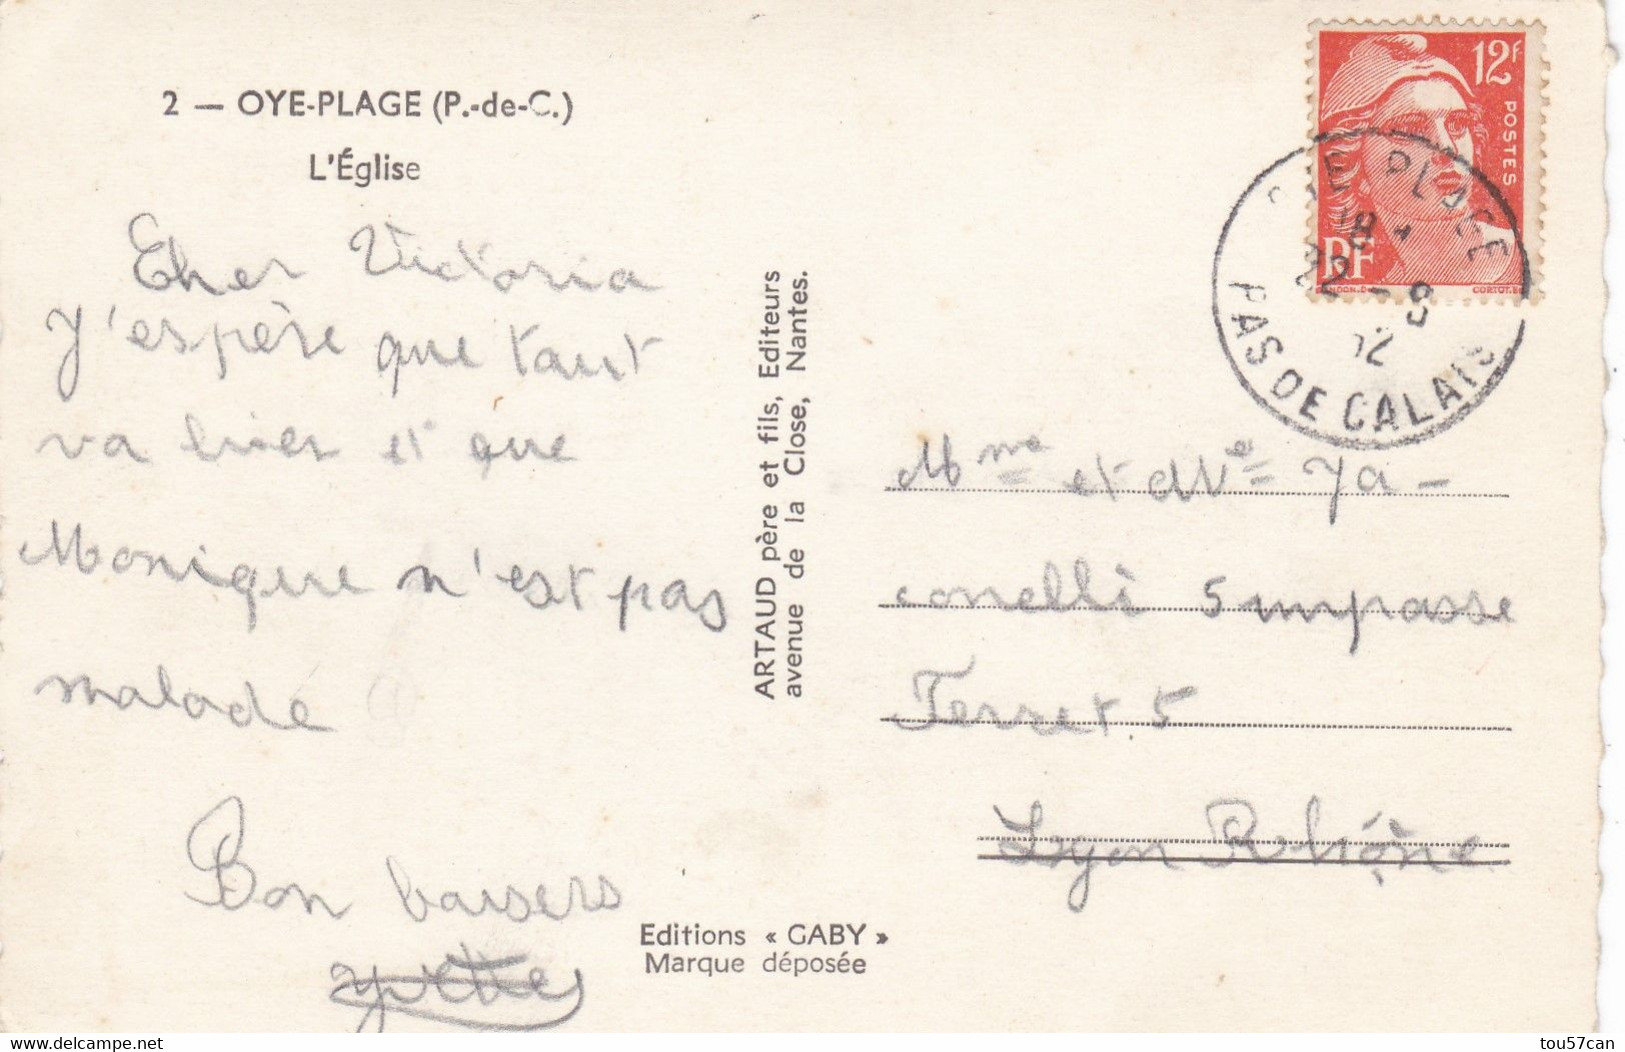 2 — OYE-PLAGE (P.-de-C.)
L'Église
Cher Victoria
J'espère que tout
va bien et que
Monique n'est pas
malade
Bon baisers
Yvette
ARTAUD père et fils, Editeurs
avenue de la Close, Nantes.
Editions « GABY »
Marque déposée
12f
POSTES
RF
PLAGE
18
22 - 8
52
PAS DE CALAIS
Mme et
conelli 5 impasse
Ferret 5
Lyon Rhône
tou57can
delcampe.net